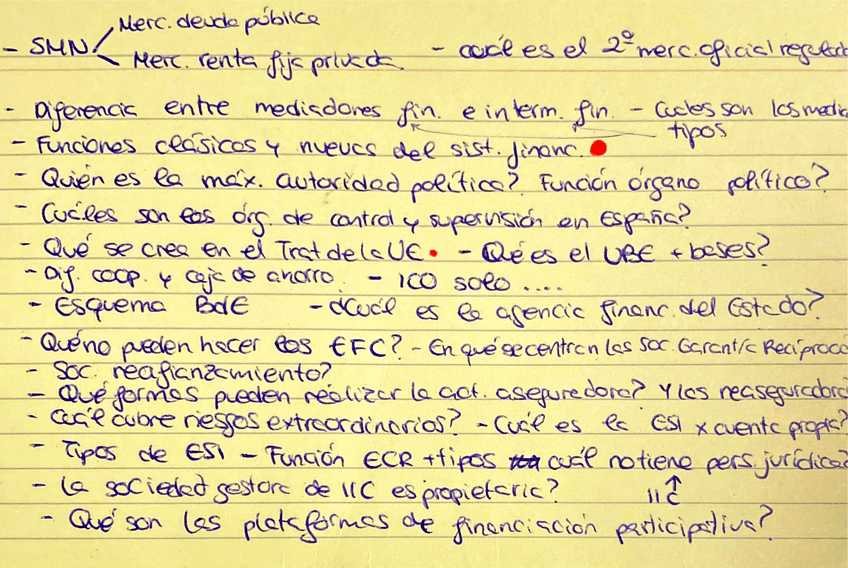 Merc. deuda pública
- SMN
Merc. renta fija privada - cuál es el 2º merc. oficial regulad
- Diferencia entre mediadores fin. e interm. fin. - Cuáles son los media
tipos
- Funciones clásicas y nuevas del sist. financ.
- Quién es la máx. autoridad política? Función órgano político?
- Cuáles son los órg. de control y supervisión en España?
- Qué se crea en el Trat de la UE - Qué es el UBE + bases?
- Dif. coop. y caja de ahorro. - ICO solo ....
- Esquema BdE - ¿Cuál es la agencia financ. del Estado?
- Qué no pueden hacer los EFC? - En qué se centran las Soc. Garantía Recíproca
- Soc. reafianzamiento?
- Qué formas pueden realizar la act. aseguradora? Y las reaseguradora
- Cuál cubre riesgos extraordinarios? - Cuál es la ESI x cuenta propia?
- Tipos de ESI - Función ECR + tipos cuál no tiene pers. jurídica?
- La sociedad gestora de IIC es propietaria? IIC
- Qué son las plataformas de financiación participativa?